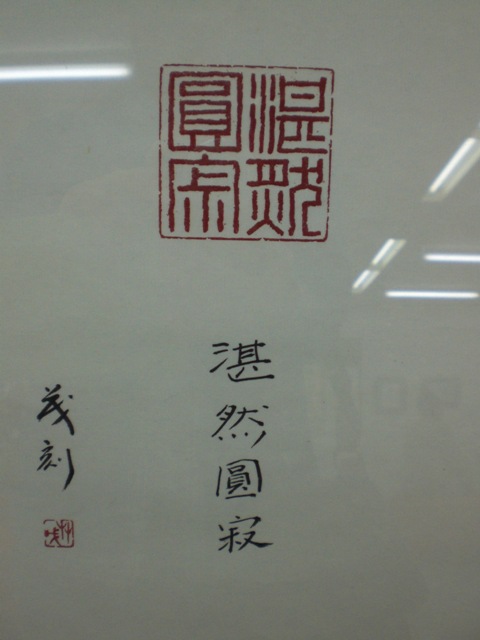 湛然
圓寂
湛然圓寂
茂刻